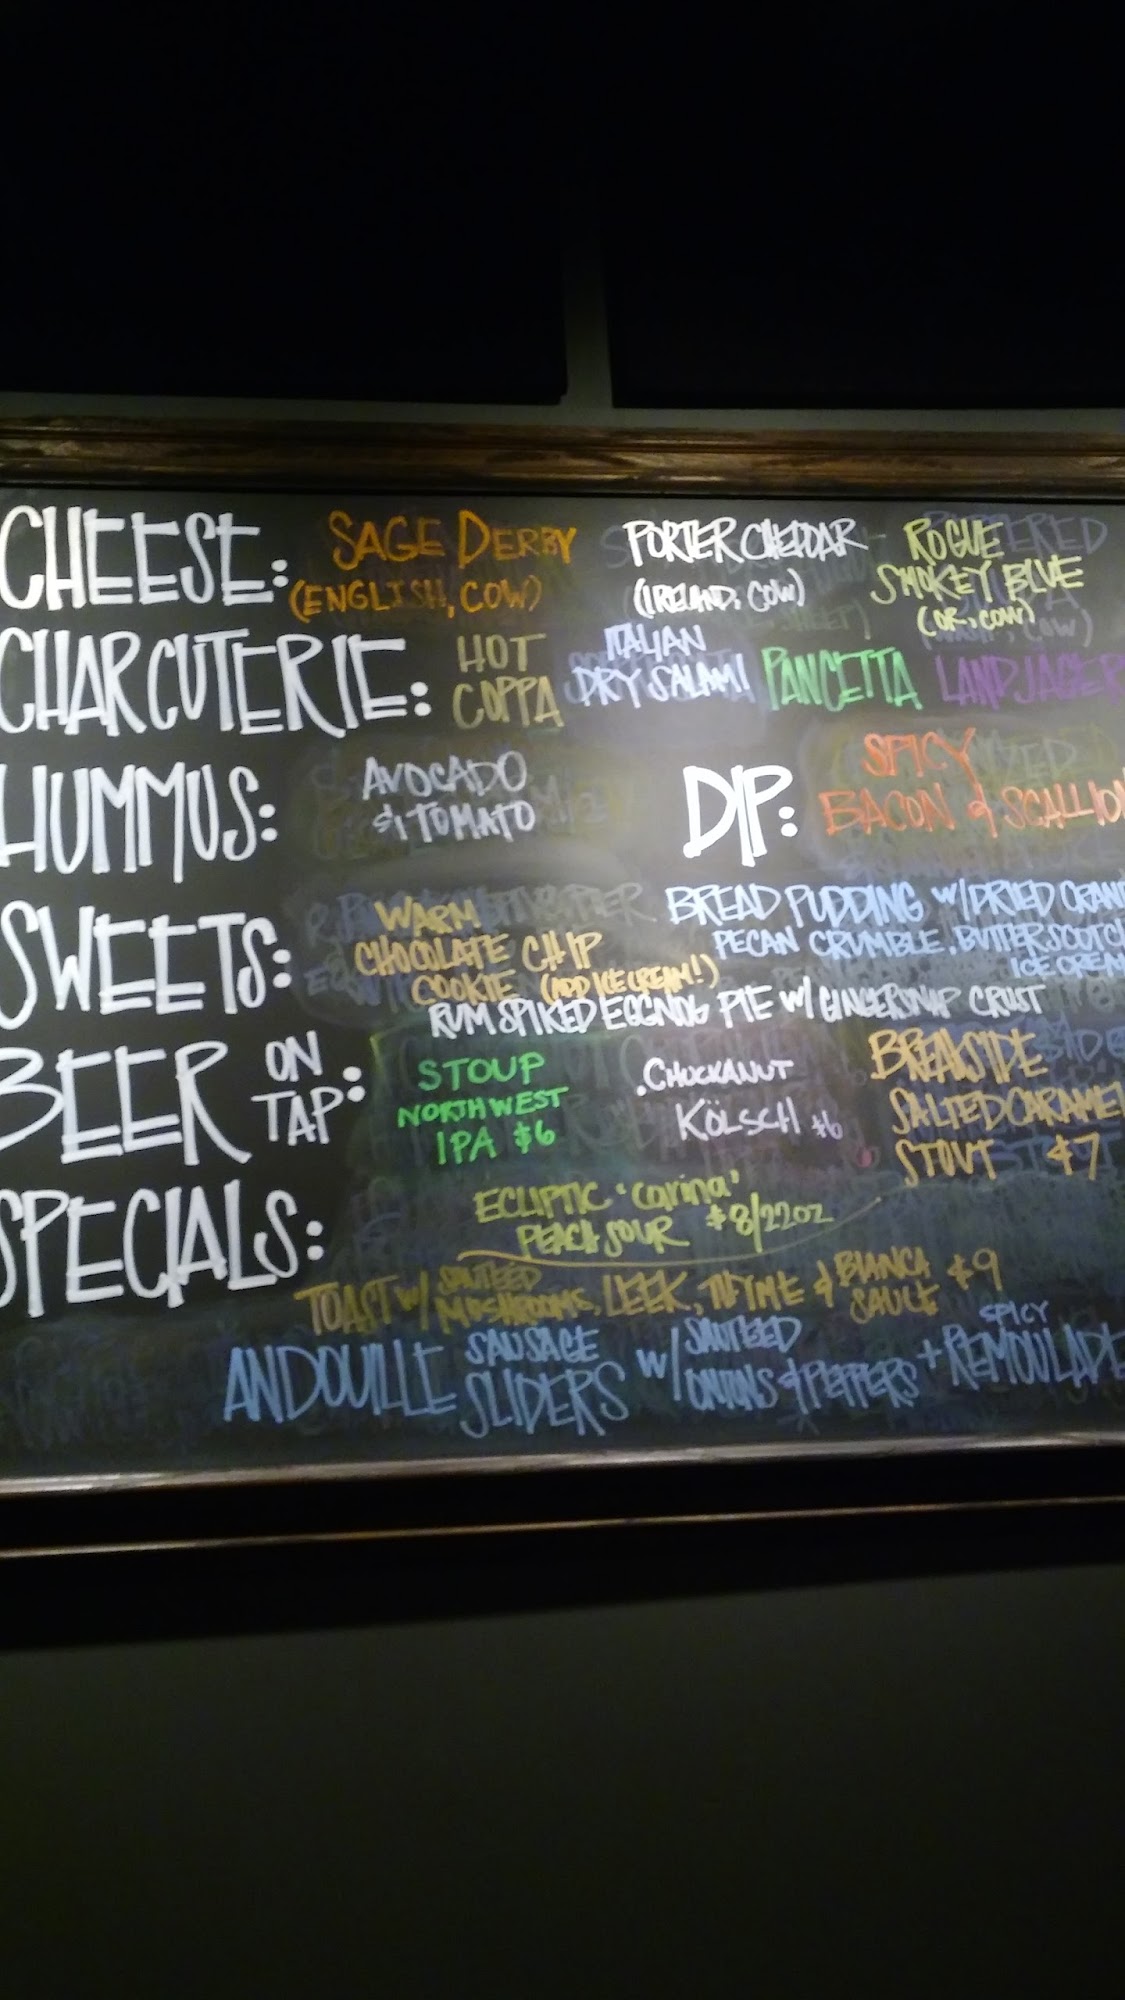 CHEESE: SAGE DERBY PORTER CHEDDAR ROGUE
(ENGLISH, COW) (IRELAND, COW) SMOKEY BLUE
(OR, COW)
CHARCUTERIE: HOT COPPA ITALIAN DRY SALAMI PANCETTA LANDJAGER
HUMMUS: AVOCADO & TOMATO DIP: SPICY BACON & SCALLION
SWEETS: WARM CHOCOLATE CHIP COOKIE (ADD ICE CREAM!)
BREAD PUDDING W/DRIED CRAN
PECAN CRUMBLE, BUTTERSCOTCH
ICE CREAM
RUM SPIKED EGGNOG PIE W/ GINGERSNAP CRUST
BEER ON TAP: STOUP NORTHWEST IPA $6
CHUCKANUT KÖLSCH $6
BREAKSIDE SALTED CARAMEL STOUT $7
SPECIALS: ECLIPTIC 'Carina'
PEACH SOUR $8/22oz
TOAST W/ SAUTEED MUSHROOMS, LEEK, THYME & BIANCA SAUCE $9
ANDOUILLE SAUSAGE SLIDERS W/ SAUTEED ONIONS & PEPPERS + SPICY REMOULADE